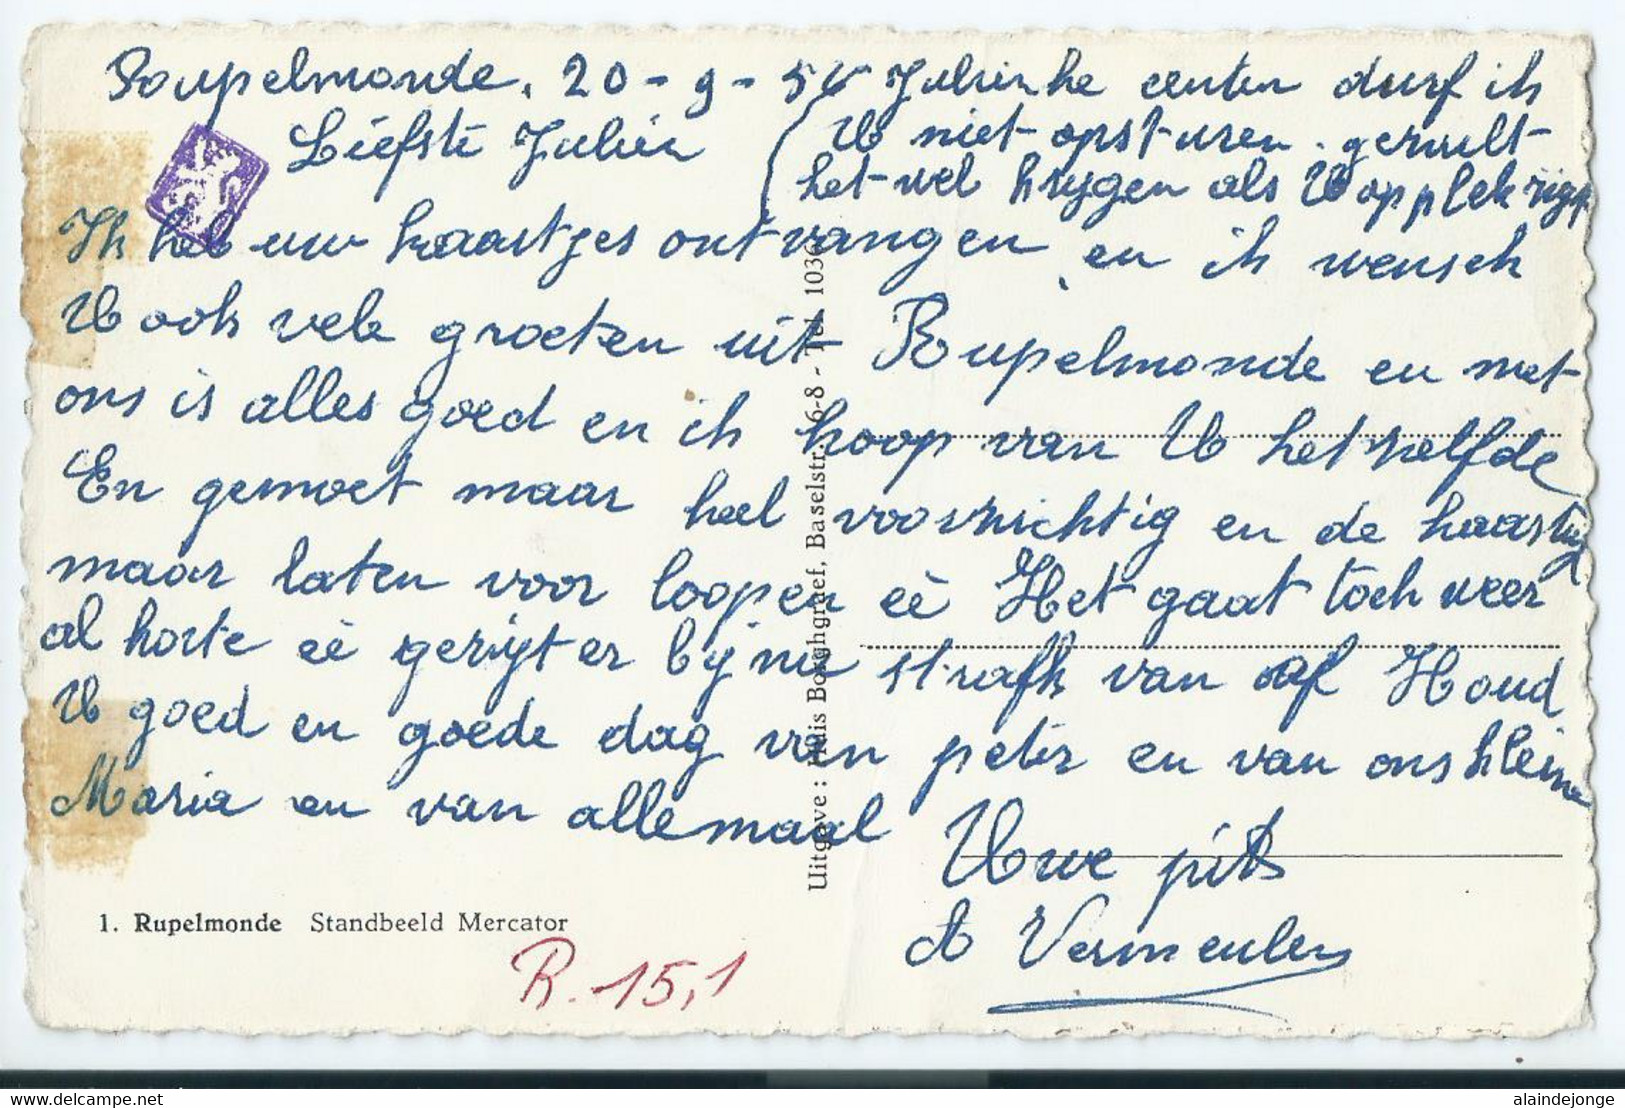 Roupelmonde. 20-9-54
Liefste Julien
Julienke centen durf ik
U niet opsturen. gezult
het wel krygen als U op plek zigt
Ik heb uw kaartjes ontvangen en ik wensch
U ook vele groeten uit Rupelmonde en met
ons is alles goed en ik hoop van U hetzelfde
En gemoet maar heel voorzichtig en de
maar laten voor loopen eè Het gaat toch weer
al korte eè gerijt er bijna strafk van af Houd
U goed en goede dag van peter en van ons kleine
Maria en van allemaal
Uwe pit
A Vermeulen
Uitgave : Huis Borghgraef, Baselstr. 6-8 - Tel. 1036
1. Rupelmonde Standbeeld Mercator
R. 15,1
delcampe.net
alaindejonge